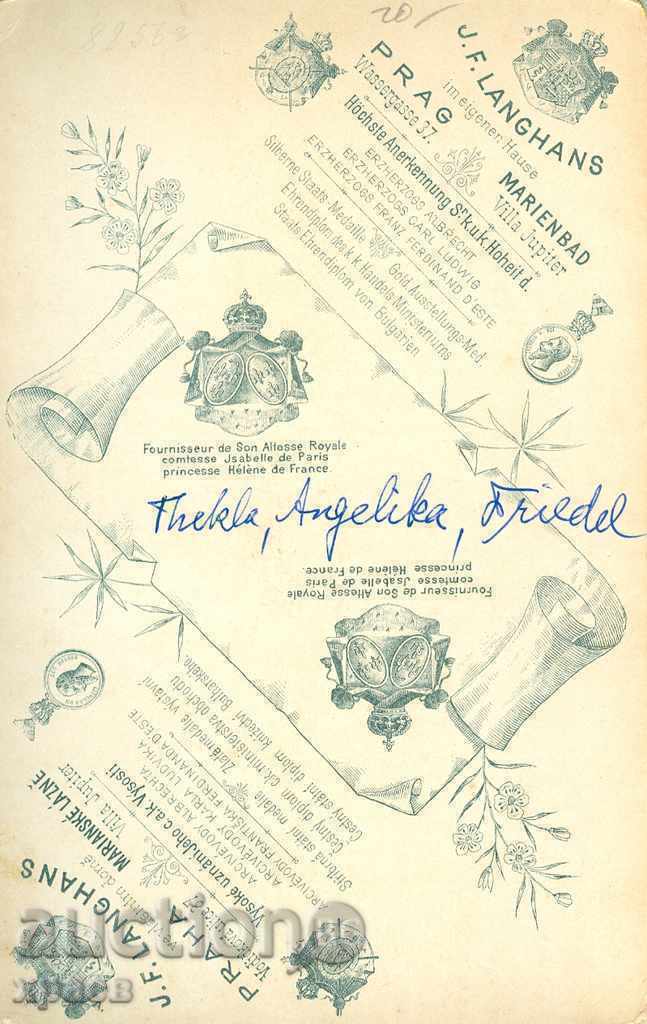 82562
20/
J. F. LANGHANS
im eigenen Hause
PRAG MARIENBAD
Wassergasse 37. Villa Jupiter
Höchste Anerkennung Sr k u k Hoheit d.
ERZHERZOGS ALBRECHT
ERZHERZOGS CARL LUDWIG
ERZHERZOGS FRANZ FERDINAND D'ESTE
Silberne Staats-Medaille Gold Ausstellungs-Med.
Ehrendiplom des k k Handels Ministeriums
Staats Ehrendiplom von Bulgarien
Fournisseur de Son Altesse Royale
comtesse Jsabelle de Paris
princesse Hélène de France.
Thekla, Angelika, Friedel
Fournisseur de Son Altesse Royale
comtesse Jsabelle de Paris
princesse Hélène de France.
J. F. LANGHANS
ve vlastním domě
PRAHA MARIANSKÉ LÁZNĚ
Vodičkova ulice 37 Villa Jupiter
Vysoké uznání Jeho c. a. k. Výsosti
ARCIVÉVODY ALBRECHTA
ARCIVÉVODY KARLA LUDVIKA
ARCIVÉVODY FRANTIŠKA FERDINANDA D'ESTE
Stříbrná státní medaile Zlatá medaile Výstavní
Čestný diplom ck. ministerstva obchodu
Čestný státní diplom knížectví Bulharského.
auction
храсв